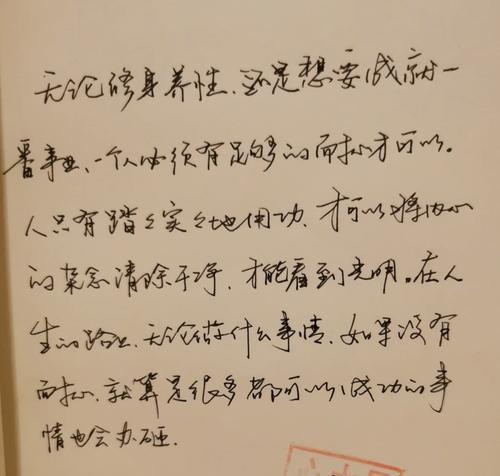 无论修身养性、还是想要成就一
番事业、一个人必须有足够的耐心才可以。
人只有踏々实々地用功、才可以将内心
的杂念清除干净、才能看到光明。在人
生的路上、无论做什么事情、如果没有
耐心、就算是很多都可以成功的事
情也会办砸.